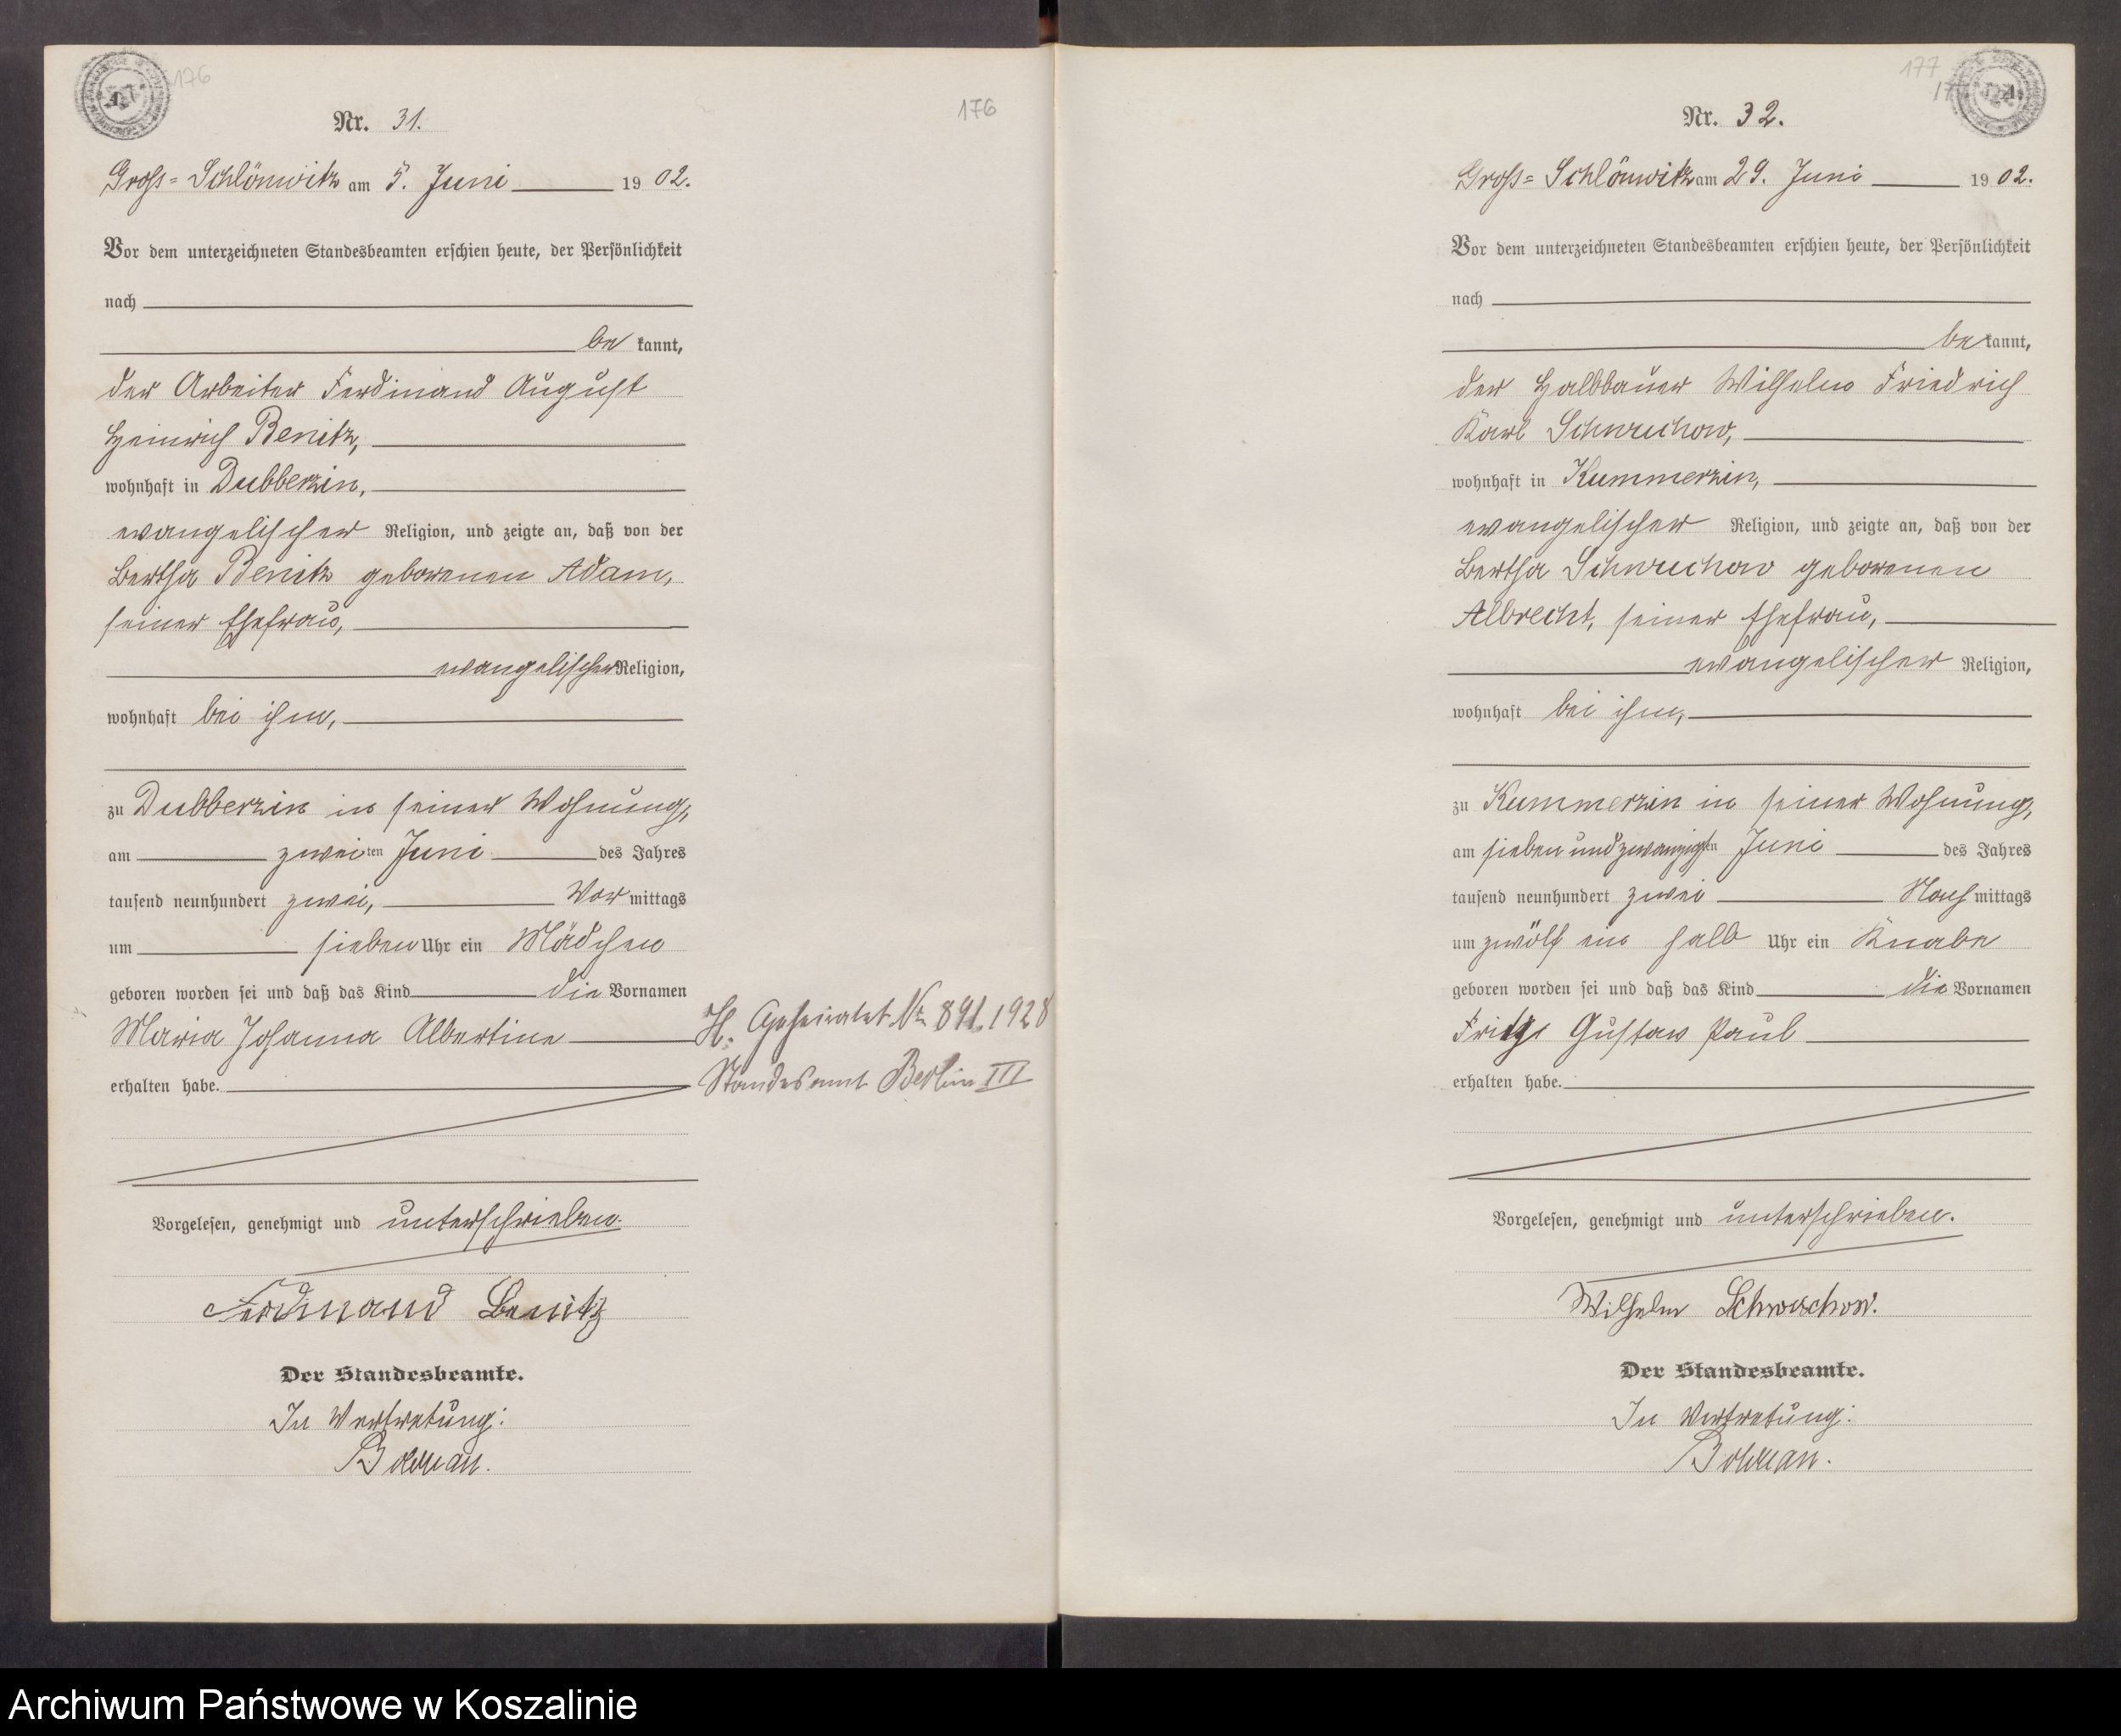 176
Nr. 31.
Gross-Schlönwitz am 5. Juni 1902.
Vor dem unterzeichneten Standesbeamten erschien heute, der Persönlichkeit
nach
be kannt,
der Arbeiter Ferdinand August
Heinrich Benitz,
wohnhaft in Dubberzin,
evangelischer Religion, und zeigte an, daß von der
Bertha Benitz geborenen Adam,
seiner Ehefrau,
evangelischer Religion,
wohnhaft bei ihm,
zu Dubberzin in seiner Wohnung,
am zweiten Juni des Jahres
tausend neunhundert zwei, Vormittags
um sieben Uhr ein Mädchen
geboren worden sei und daß das Kind die Vornamen
Maria Johanna Albertine
erhalten habe.
Vorgelesen, genehmigt und unterschrieben.
Ferdinand Benitz
Der Standesbeamte.
In Vertretung:
176
H. Geheiratet Nr. 891.1928
Standesamt Berlin III
177
Nr. 32.
Gross-Schlönwitz am 29. Juni 1902.
Vor dem unterzeichneten Standesbeamten erschien heute, der Persönlichkeit
nach
be kannt,
der Halbbauer Wilhelm Friedrich
Karl Schwuchow,
wohnhaft in Kummerzin,
evangelischer Religion, und zeigte an, daß von der
Bertha Schwuchow geborenen
Albrecht, seiner Ehefrau,
evangelischer Religion,
wohnhaft bei ihm,
zu Kummerzin in seiner Wohnung,
am sieben und zwanzigsten Juni des Jahres
tausend neunhundert zwei Nachmittags
um zwölf ein halb Uhr ein Knabe
geboren worden sei und daß das Kind die Vornamen
Fritz Gustav Paul
erhalten habe.
Vorgelesen, genehmigt und unterschrieben.
Wilhelm Schwuchow.
Der Standesbeamte.
In Vertretung:
Archiwum Państwowe w Koszalinie